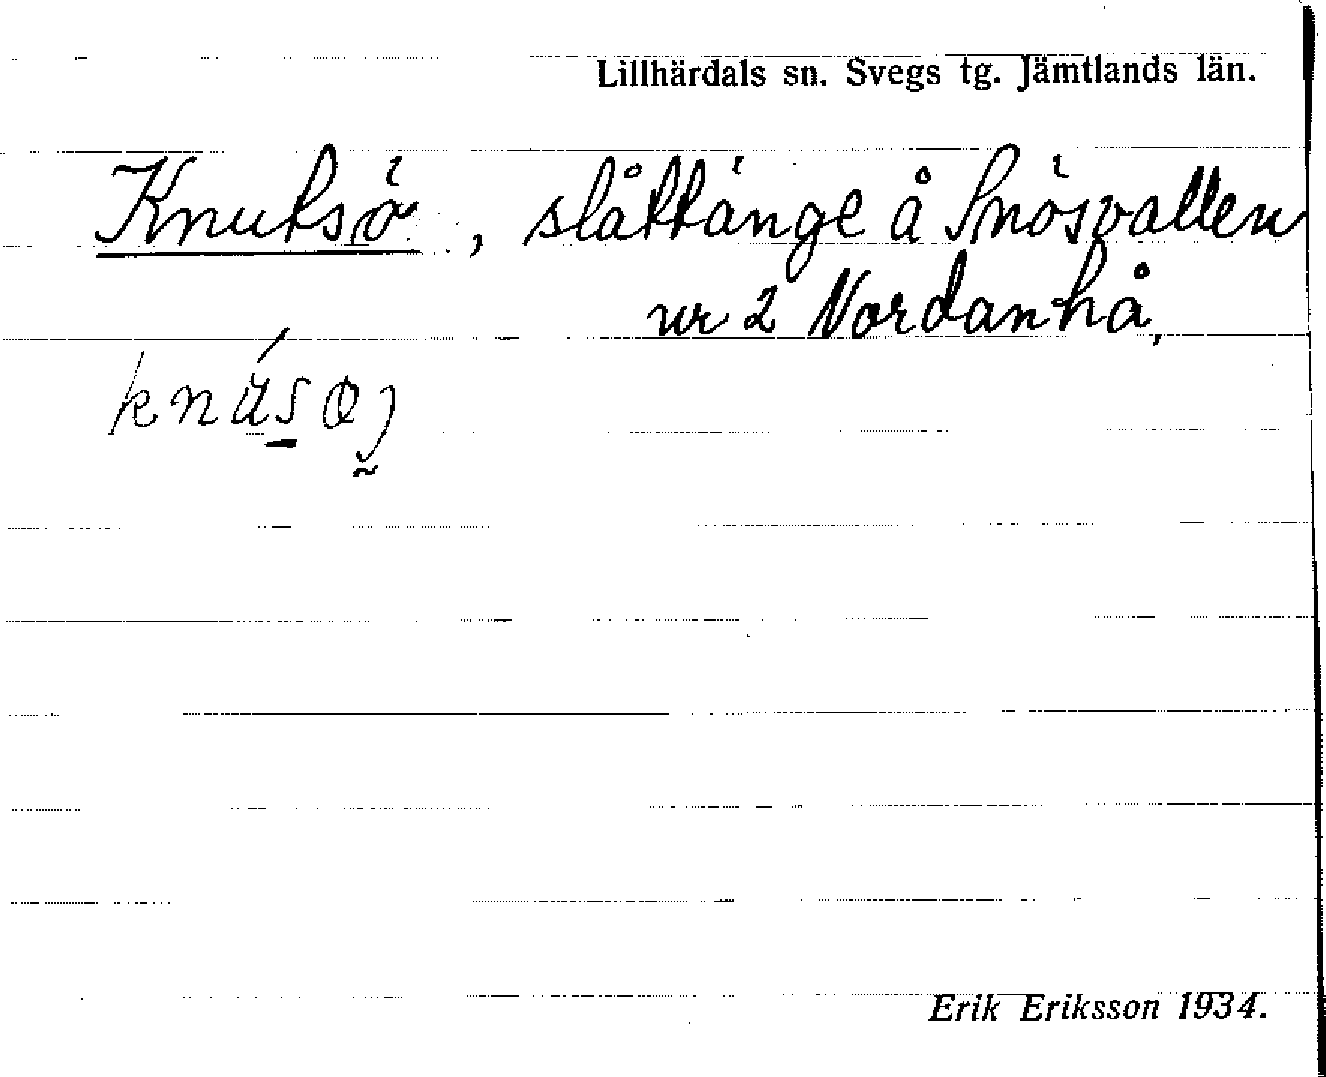 Lillhärdals sn. Svegs tg. Jämtlands län.
Knutsö, slåttänge å Snösvallen
nr 2 Nordanhå,
Erik Eriksson 1934.